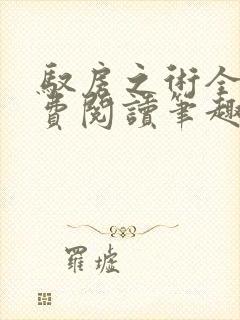 馭房之術全
費閱讀筆趣
羅墟